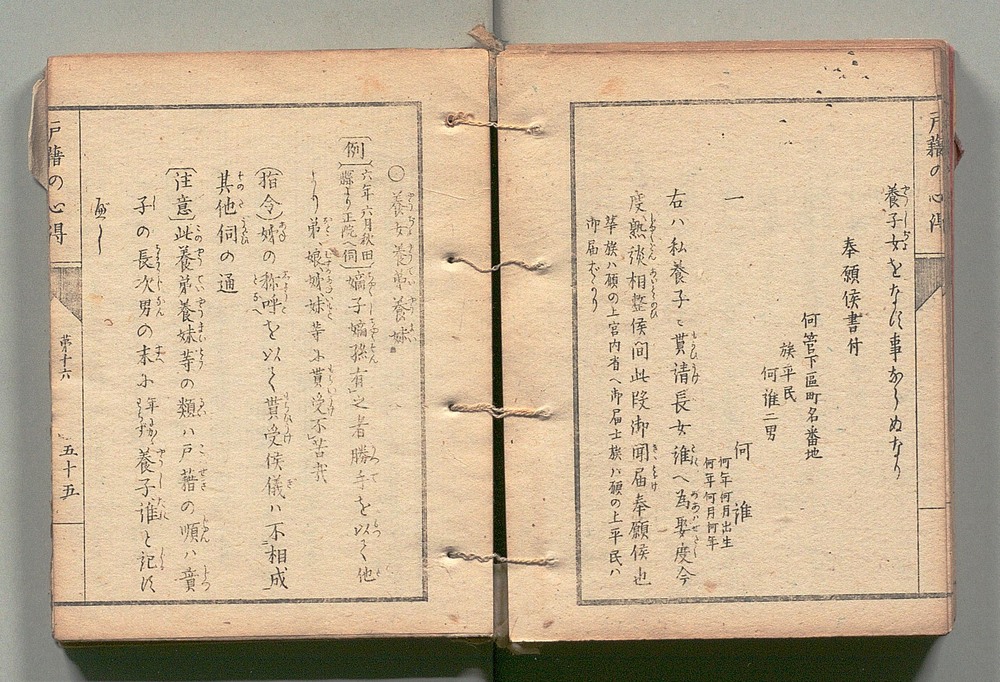 戸籍の心得
養子女をなす事ならぬなり
奉願候書付
何管下區町名番地
族平民
何誰二男
一
何誰
何年何月出生
何年何月何年
右ハ私養子ニ貰請長女誰へ為娶度今
度熟談相整候間此段御聞届奉願候也
華族ハ願の上宮内省へ御届士族ハ願の上平民ハ
御届
〇養女養弟養妹
(例)六年六月秋田縣より正院へ伺
嫡子嫡孫有之者勝手を以て他
より弟、娘、姉妹等に貰受不苦哉
(指令)姉の称呼を以て貰受候儀ハ不相成
其他伺の通
(注意)此養弟養妹等の類ハ戸籍の順ハ
子の長次男の末に年
養子誰と記す
べし
戸籍の心得
第十六
五十五